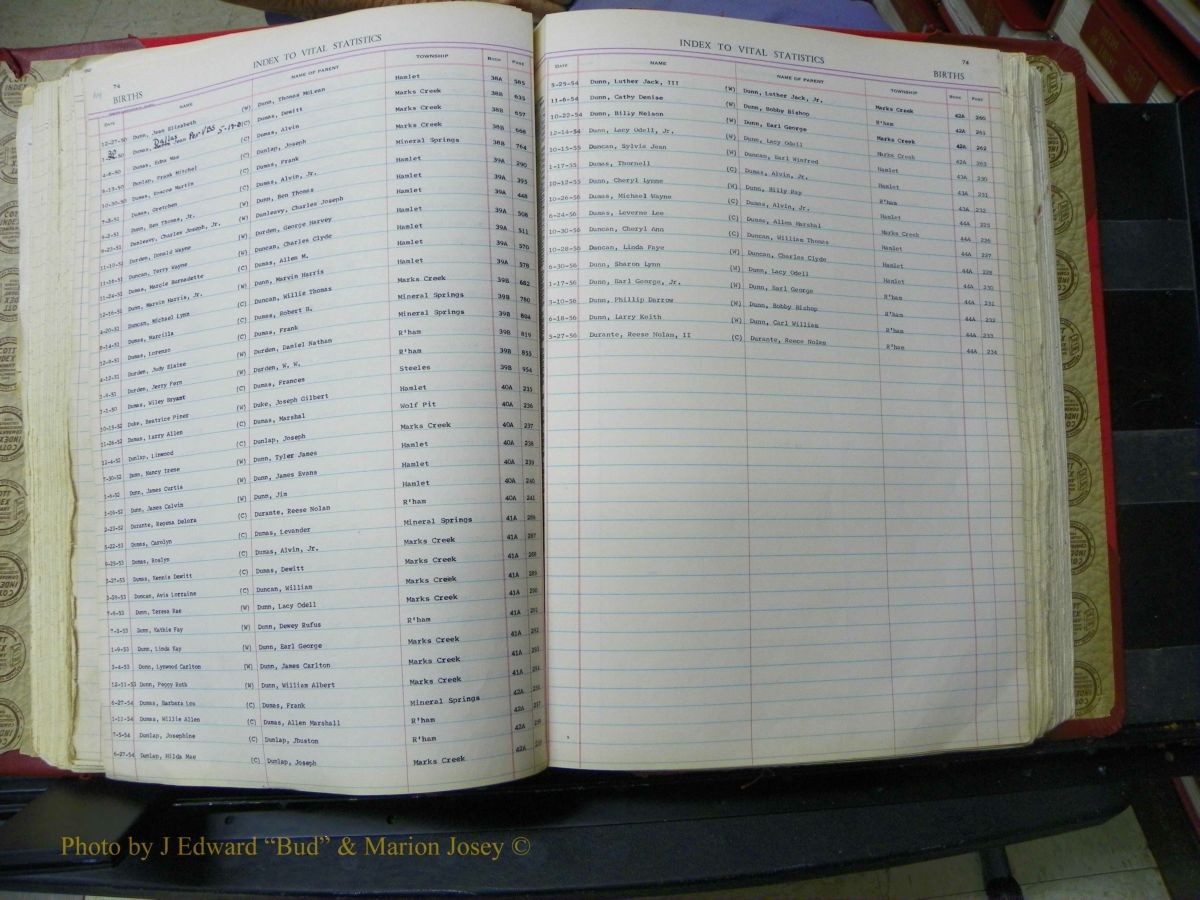 INDEX TO VITAL STATISTICS
74
BIRTHS
DATE NAME NAME OF PARENT TOWNSHIP BOOK PAGE
12-27-50 Dunn, Jean Elizabeth (W) Dunn, Thomas McLean Hamlet 38A 585
Dumas, Dallas Jean Per VBS 5-19-81 (C) Dumas, Dewitt Marks Creek 38B 635
4-8-50 Dumas, Edna Mae (C) Dumas, Alvin Marks Creek 38B 657
Dunlap, Frank Mitchel (C) Dunlap, Joseph Marks Creek 38B 668
10-30-50 Dumas, Roscoe Martin (C) Dumas, Frank Mineral Springs 38B 764
Dumas, Gretchen (C) Dumas, Alvin, Jr. Hamlet 39A 290
Dunn, Ben Thomas, Jr. (W) Dunn, Ben Thomas Hamlet 39A 395
Dunleavy, Charles Joseph, Jr. (W) Dunleavy, Charles Joseph Hamlet 39A 448
Durden, Donald Wayne (W) Durden, George Harvey Hamlet 39A 508
Duncan, Terry Wayne (W) Duncan, Charles Clyde Hamlet 39A 511
11-24-51 Dumas, Marcie Bernadette (C) Dumas, Allen M. Hamlet 39A 570
12-16-51 Dunn, Marvin Harris, Jr. (W) Dunn, Marvin Harris Hamlet 39A 578
Duncan, Michael Lynn (C) Duncan, Willie Thomas Marks Creek 39B 682
8-14-51 Dumas, Marcilla (C) Dumas, Robert B. Mineral Springs 39B 780
12-9-51 Dumas, Lorenzo (C) Dumas, Frank Mineral Springs 39B 804
4-12-51 Durden, Judy Elaine (W) Durden, Daniel Nathan R'ham 39B 819
Durden, Jerry Fern (W) Durden, W. W. R'ham 39B 855
7-1-50 Dumas, Wiley Bryant (C) Dumas, Frances Steeles 39B 954
10-15-52 Duke, Beatrice Piner (W) Duke, Joseph Gilbert Hamlet 40A 235
11-26-52 Dumas, Larry Allen (C) Dumas, Marshal Wolf Pit 40A 236
Dunlap, Linwood (C) Dunlap, Joseph Marks Creek 40A 237
7-30-52 Dunn, Nancy Irene (W) Dunn, Tyler James Hamlet 40A 238
Dunn, James Curtis (W) Dunn, James Evans Hamlet 40A 239
Dunn, James Calvin (W) Dunn, Jim Hamlet 40A 240
2-23-52 Durante, Regena Delora (C) Durante, Reese Nolan R'ham 40A 241
5-22-53 Dumas, Carolyn (C) Dumas, Levander Mineral Springs 41A 286
Dumas, Roslyn (C) Dumas, Alvin, Jr. Marks Creek 41A 287
Dumas, Kennis Dewitt (C) Dumas, Dewitt Marks Creek 41A 288
Duncan, Avis Lorraine (C) Duncan, William Marks Creek 41A 289
Dunn, Teresa Rae (W) Dunn, Lacy Odell Marks Creek 41A 290
7-3-53 Dunn, Kathie Fay (W) Dunn, Dewey Rufus R'ham 41A 291
1-9-53 Dunn, Linda Kay (W) Dunn, Earl George Marks Creek 41A 292
3-4-53 Dunn, Lynwood Carlton (W) Dunn, James Carlton Marks Creek 41A 293
12-11-53 Dunn, Peggy Ruth (W) Dunn, William Albert Marks Creek 41A 294
6-27-54 Dumas, Barbara Lou (C) Dumas, Frank Mineral Springs 42A
1-11-54 Dumas, Willie Allen (C) Dumas, Allen Marshall R'ham 42A 257
7-5-54 Dunlap, Josephine (C) Dunlap, Jhuston R'ham 42A
6-27-54 Dunlap, Hilda Mae (C) Dunlap, Joseph Marks Creek 42A
INDEX TO VITAL STATISTICS
74
BIRTHS
DATE NAME NAME OF PARENT TOWNSHIP BOOK PAGE
5-29-54 Dunn, Luther Jack, III (W) Dunn, Luther Jack, Jr. Marks Creek 42A 260
11-6-54 Dunn, Cathy Denise (W) Dunn, Bobby Bishop R'ham 42A 261
10-22-54 Dunn, Billy Nelson (W) Dunn, Earl George Marks Creek 42A 262
12-14-54 Dunn, Lacy Odell, Jr. (W) Dunn, Lacy Odell Marks Creek 42A 263
10-15-55 Duncan, Sylvia Jean (W) Duncan, Earl Winfred Hamlet 43A 230
1-17-55 Dumas, Thornell (C) Dumas, Alvin, Jr. Hamlet 43A 231
10-12-55 Dunn, Cheryl Lynne (W) Dunn, Billy Ray R'ham 43A 232
10-26-56 Dumas, Michael Wayne (C) Dumas, Alvin, Jr. Hamlet 44A 225
6-24-56 Dumas, Leverne Lee (C) Dumas, Allen Marshal Marks Creek 44A 226
10-30-56 Duncan, Cheryl Ann (C) Duncan, William Thomas Hamlet 44A 227
10-28-56 Duncan, Linda Faye (W) Duncan, Charles Clyde Hamlet 44A 228
6-30-56 Dunn, Sharon Lynn (W) Dunn, Lacy Odell Hamlet 44A 230
1-17-56 Dunn, Earl George, Jr. (W) Dunn, Earl George R'ham 44A 231
3-10-56 Dunn, Phillip Darrow (W) Dunn, Bobby Bishop R'ham 44A 232
6-18-56 Dunn, Larry Keith (W) Dunn, Carl William R'ham 44A 233
5-27-56 Durante, Reese Nolan, II (C) Durante, Reese Nolan R'ham 44A 234
Photo by J Edward “Bud” & Marion Josey ©